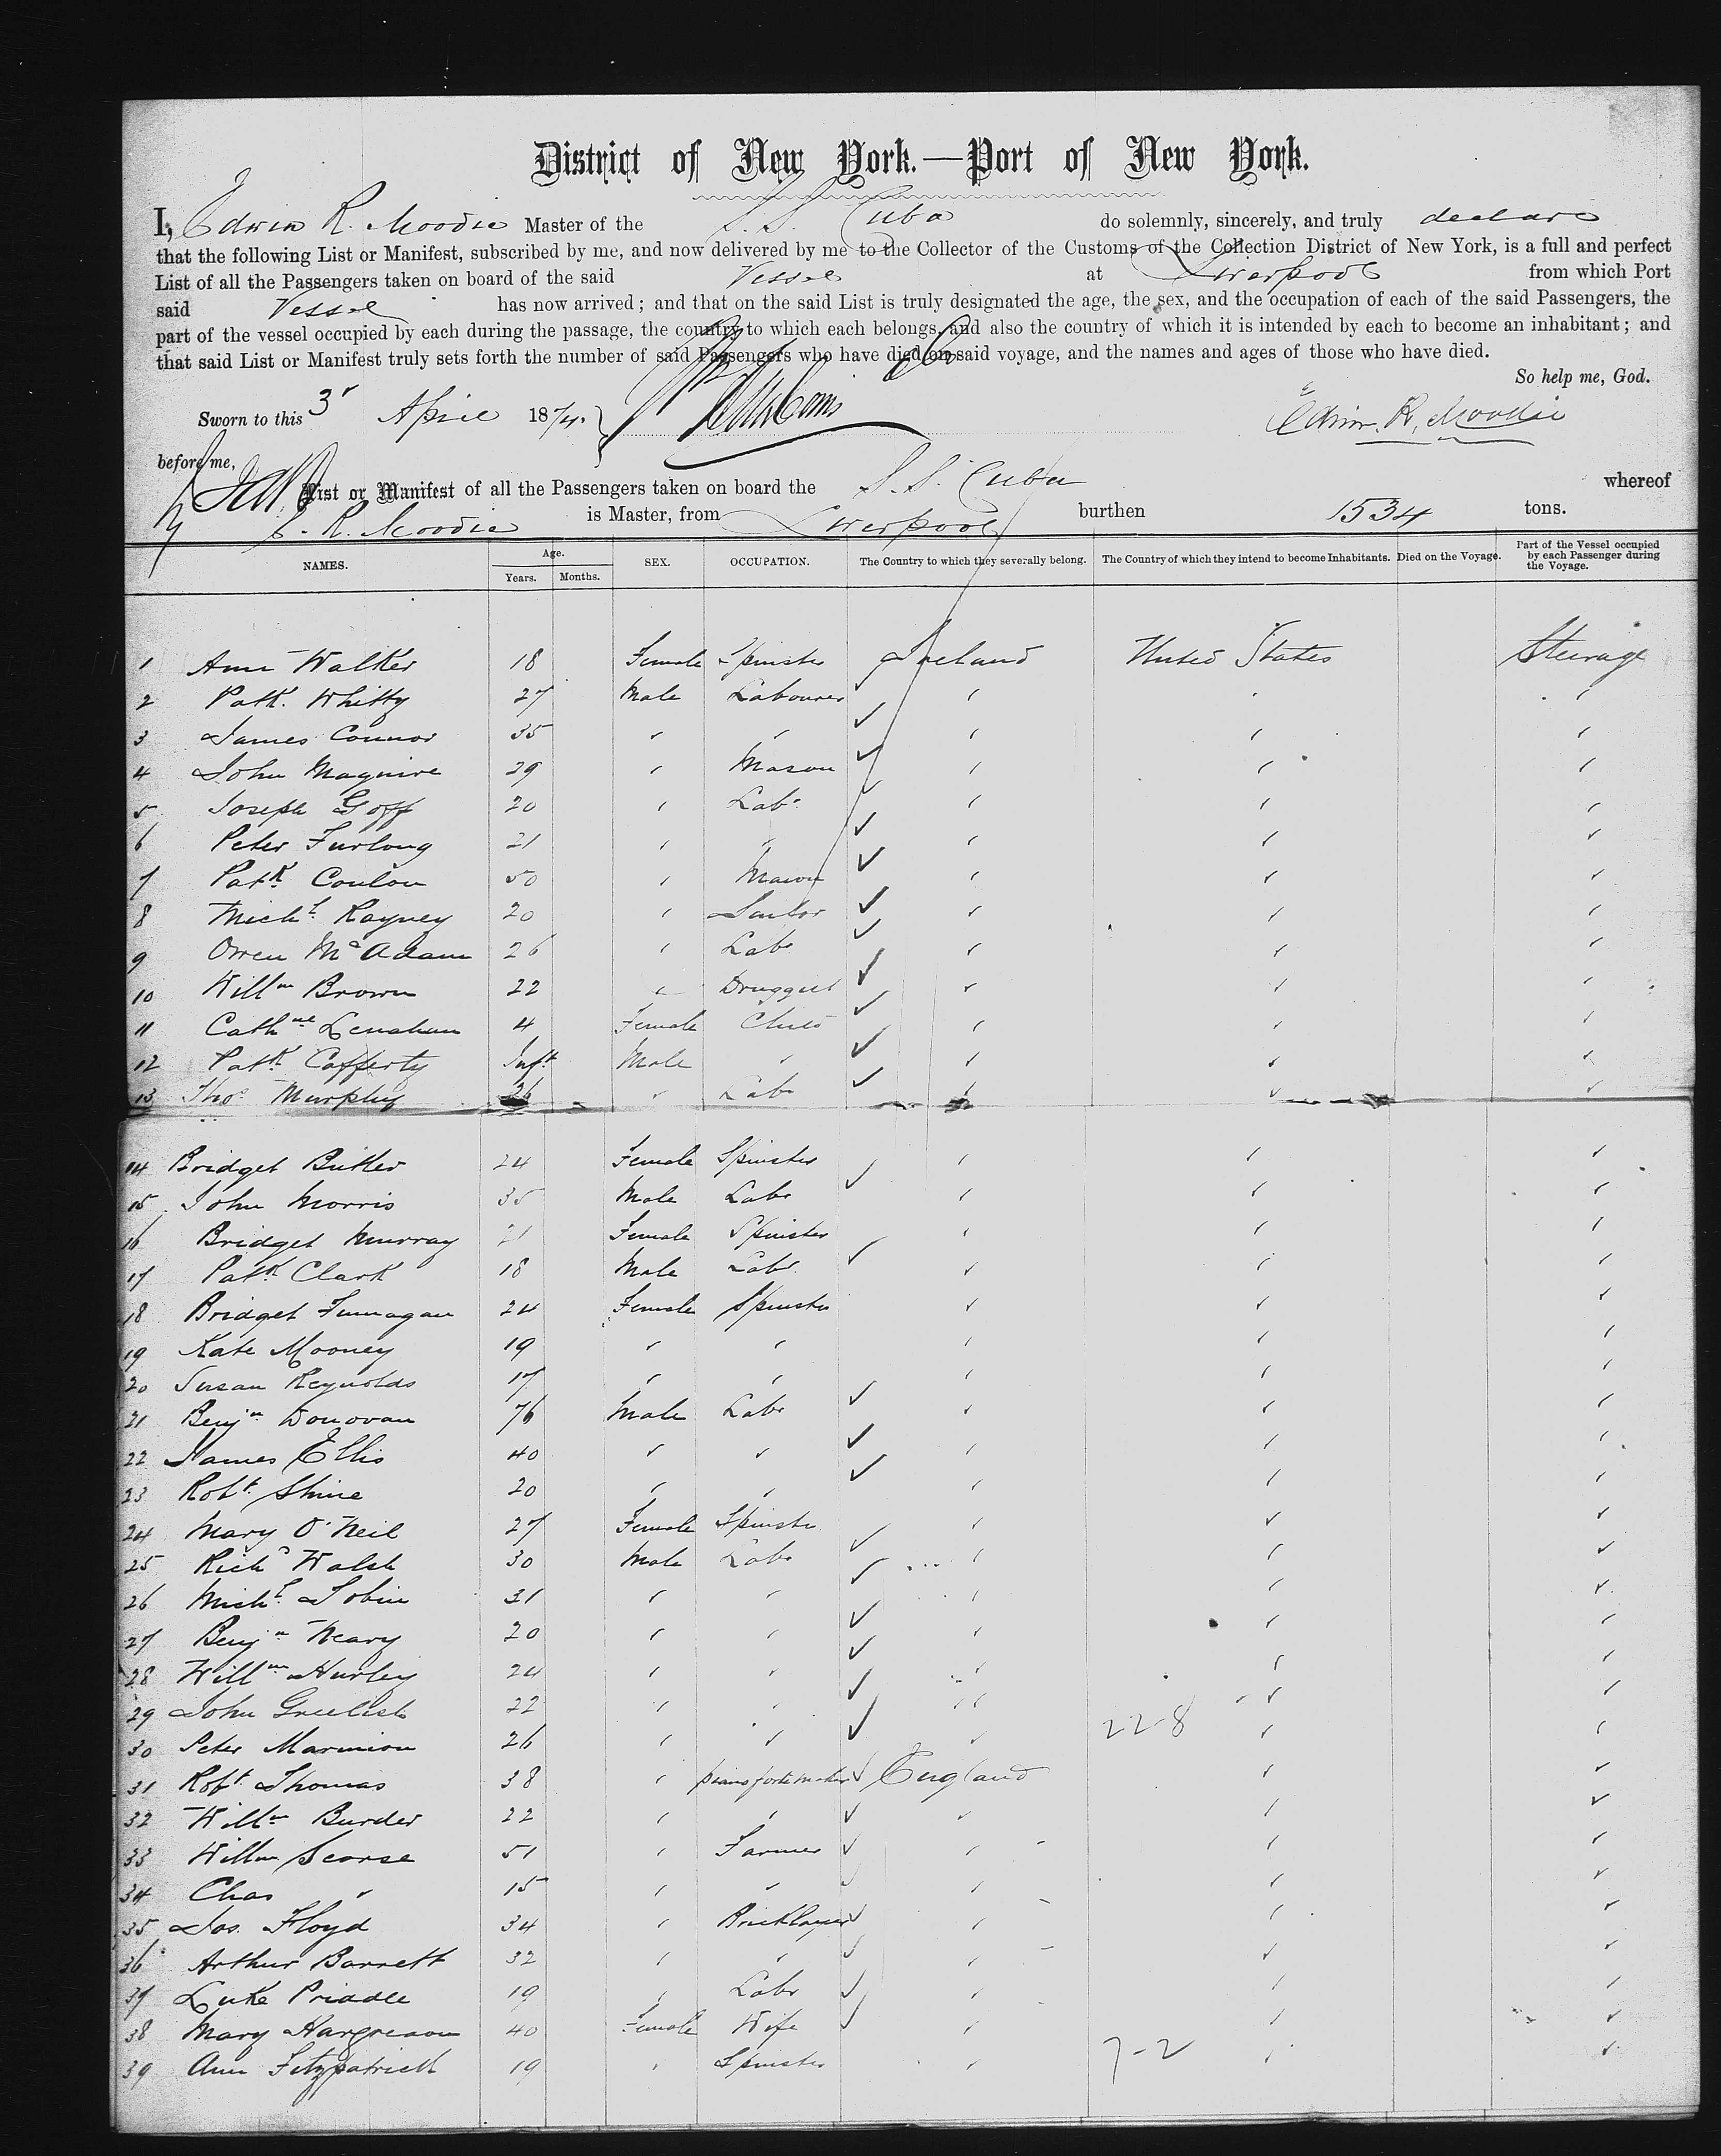 District of New York.—Port of New York.
I, Edwin R. Moodie Master of the S.S. Cuba do solemnly, sincerely, and truly declare
that the following List or Manifest, subscribed by me, and now delivered by me to the Collector of the Customs of the Collection District of New York, is a full and perfect
List of all the Passengers taken on board of the said Vessel at Liverpool from which Port
said Vessel has now arrived; and that on the said List is truly designated the age, the sex, and the occupation of each of the said Passengers, the
part of the vessel occupied by each during the passage, the country to which each belongs, and also the country of which it is intended by each to become an inhabitant; and
that said List or Manifest truly sets forth the number of said Passengers who have died on said voyage, and the names and ages of those who have died.
So help me, God.
Sworn to this 3 April 1874. Edwin. R. Moodie
before me,
List or Manifest of all the Passengers taken on board the S.S. Cuba whereof
E. R. Moodie is Master, from Liverpool burthen 1534 tons.
NAMES. Age. Years. Months. SEX. OCCUPATION. The Country to which they severally belong. The Country of which they intend to become Inhabitants. Died on the Voyage. Part of the Vessel occupied by each Passenger during the Voyage.
1 Ann Walker 18 Female Spinster Ireland United States Steerage
2 Patk. Whitty 27 Male Labourer
3 James Connor 35
4 John Maguire 29 Mason
5 Joseph Goff 20 Labr
6 Peter Furlong 21
7 Patk Conlon 50 Mason
8 Michl Rayney 20
9 Owen Mc Adam 26 Labr
10 Willm Brown 22 Druggist
11 Cathne Lenahan 4 Female Child
12 Patk Cafferty Inft Male
13 Thos Murphy 26 Labr
14 Bridget Butler 24 Female Spinster
15 John Morris 35 Male Labr
16 Bridget Murray 21 Female Spinster
17 Patk Clark 18 Male Labr
18 Bridget 24 Female Spinster
19 Kate Mooney 19
20 Susan Reynolds 17
21 Benjn Donovan 76 Male Labr
22 James Ellis 40
23 Robt Shine 20
24 Mary O'Neil 27 Female Spinster
25 Richd Walsh 30 Male Labr
26 Michl Tobin 31
27 Benjn Neary 20
28 Willm Hurley 24
29 John Greelish 22 228
30 Peter Marmion 26
31 Robt Thomas 38 pianoforte maker England
32 Willm Burder 22
33 Willm Scorse 51 Farmer
34 Chas " 15
35 Jos. Floyd 34 Bricklayer
36 Arthur Barrett 32
37 Luke Priddle 19 Labr
38 Mary Hargreaves 40 Female Wife
39 Ann Fitzpatrick 19 Spinster 7-2